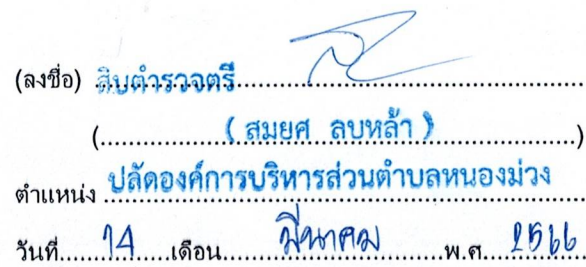 (ลงชื่อ) สิบตำรวจตรี
( สมยศ ลบหล้า )
ตำแหน่ง ปลัดองค์การบริหารส่วนตำบลหนองม่วง
วันที่ 14 เดือน มีนาคม พ.ศ. 2566